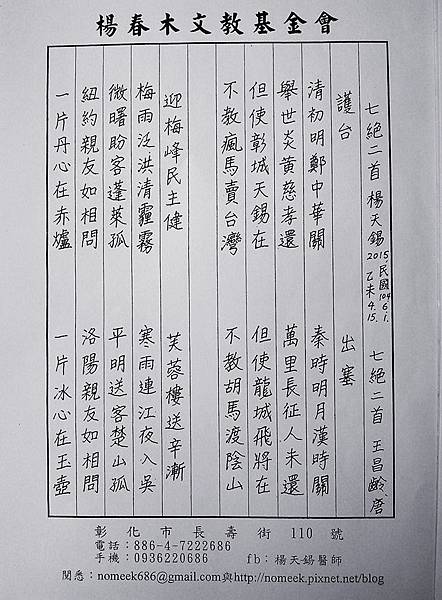 楊春木文教基金會
七絕二首 楊天錫 2015,民國104.6.1. 乙未4.15. 七絕二首 王昌齡,唐
護台 出塞
清初明鄭中華關 秦時明月漢時關
舉世炎黃慈孝還 萬里長征人未還
但使彰城天錫在 但使龍城飛將在
不教瘋馬賣台灣 不教胡馬渡陰山
迎梅峰民主健 芙蓉樓送辛漸
梅雨泛洪清霾霧 寒雨連江夜入吳
微曙盼客蓬萊孤 平明送客楚山孤
紐約親友如相問 洛陽親友如相問
一片丹心在赤爐 一片冰心在玉壺
彰化市長壽街 110 號
電話：886-4-7222686
手機：0936220686 fb：楊天錫醫師
閱悉：nomeek686@gmail.com與http://nomeek.pixnet.net/blog